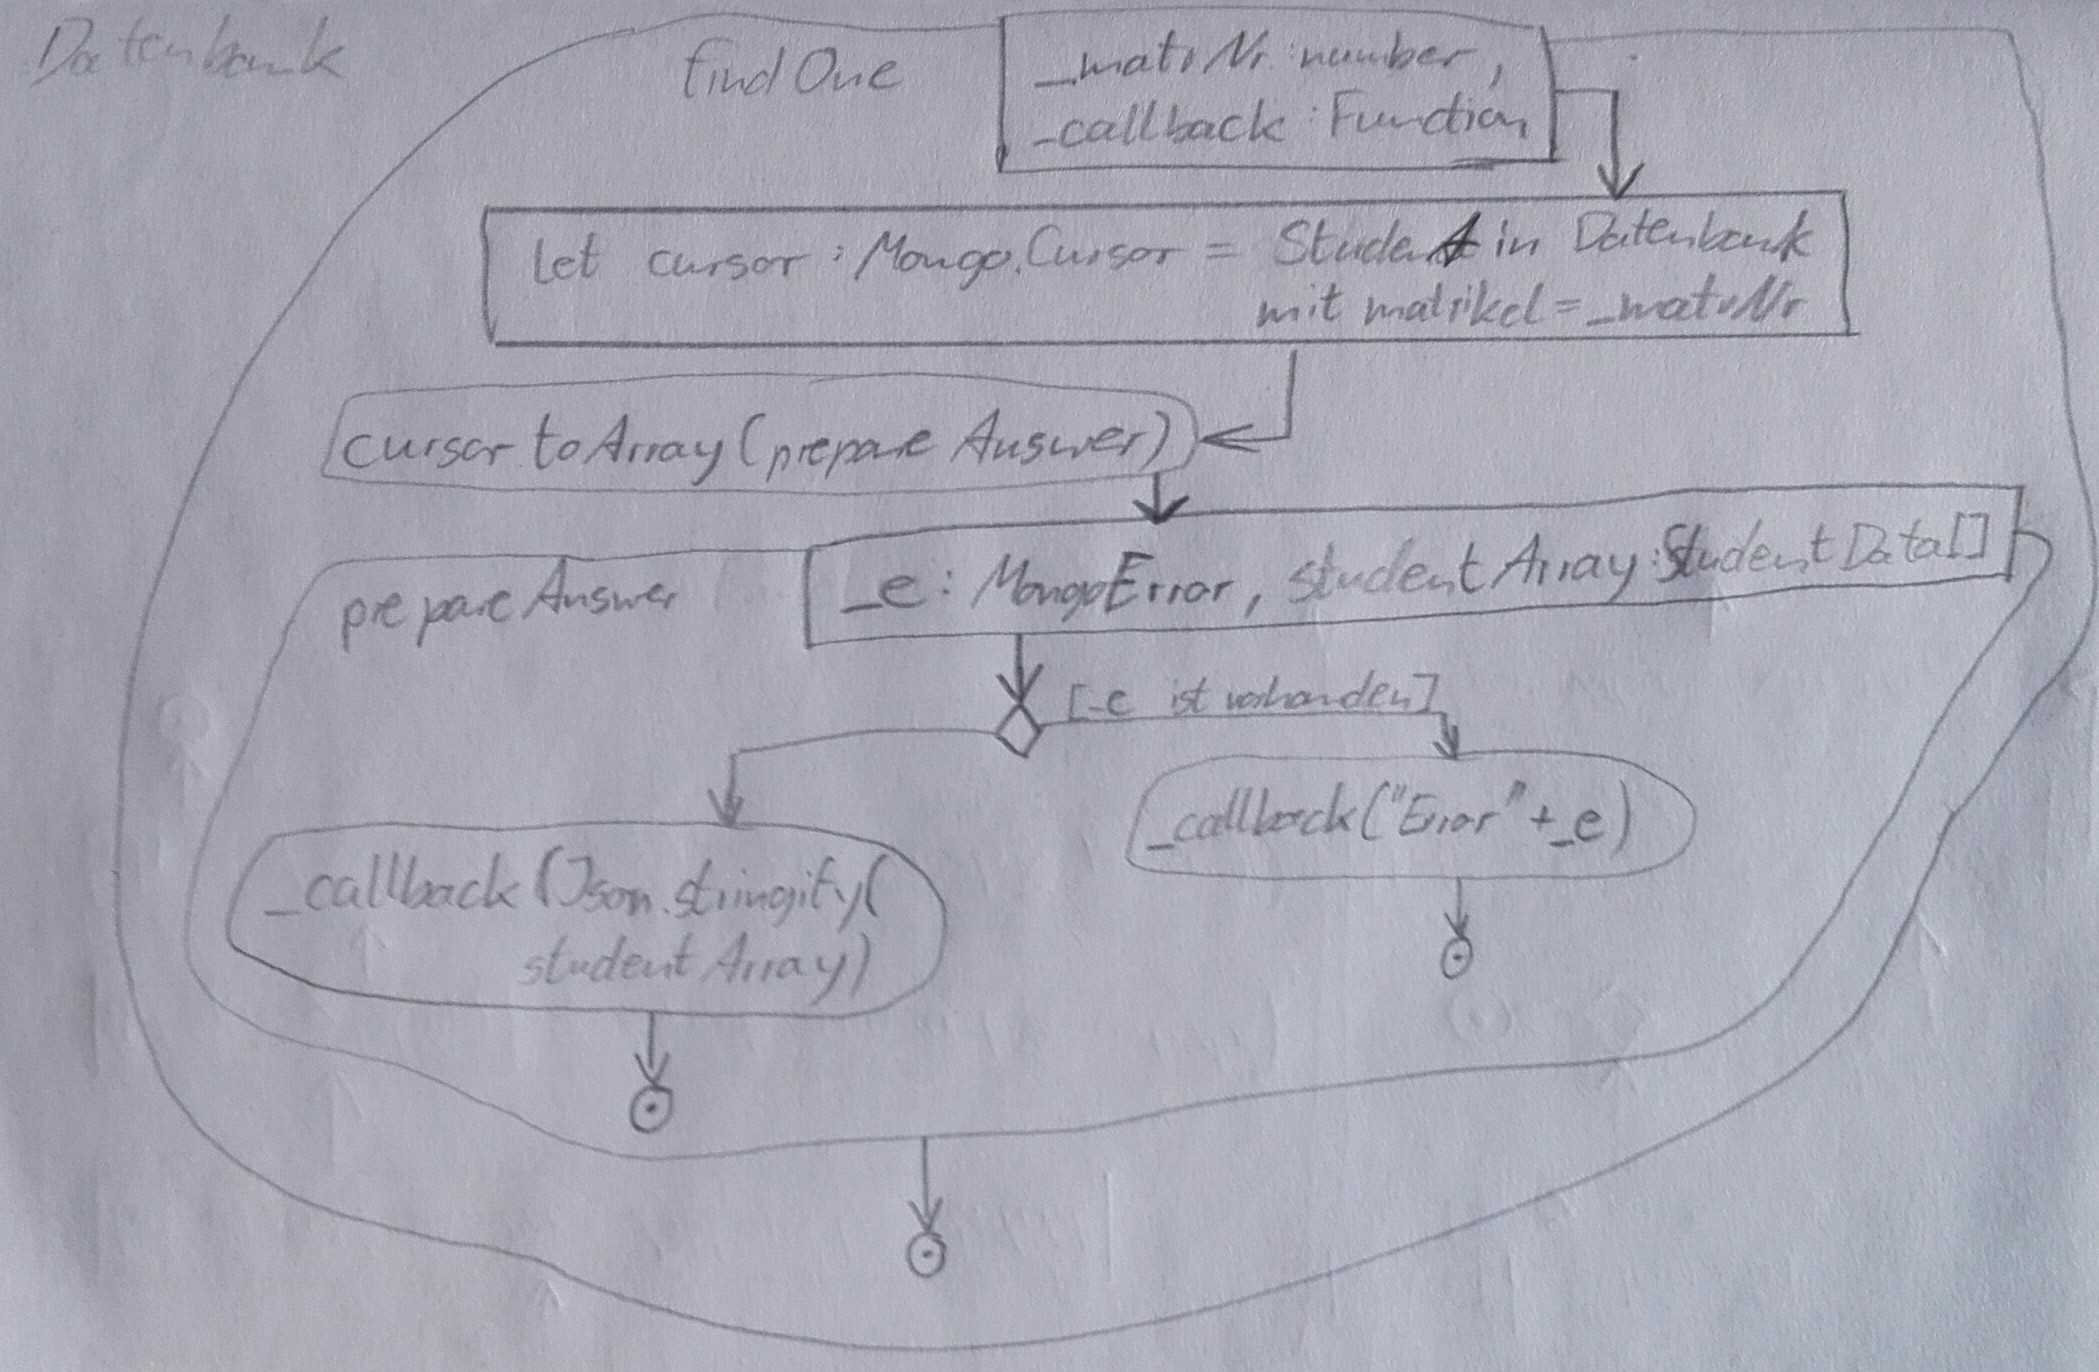 Datenbank
findOne
_matrNr: number,
_callback: Function
let cursor: Mongo.Cursor = Student in Datenbank
mit matrikel = _matrNr
cursor.toArray(prepareAnswer)
prepareAnswer
_e: MongoError, studentArray: StudentData[]
[_e ist vorhanden]
_callback("Error" + _e)
_callback(Json.stringify(
studentArray)